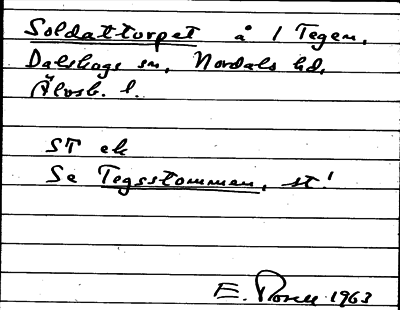 Soldattorpet å 1 Tegen,
Dalskogs sn, Nordals hd,
Älvsb. l.
ST ek
Se Tegsstommen, st!
E. Rosell 1963